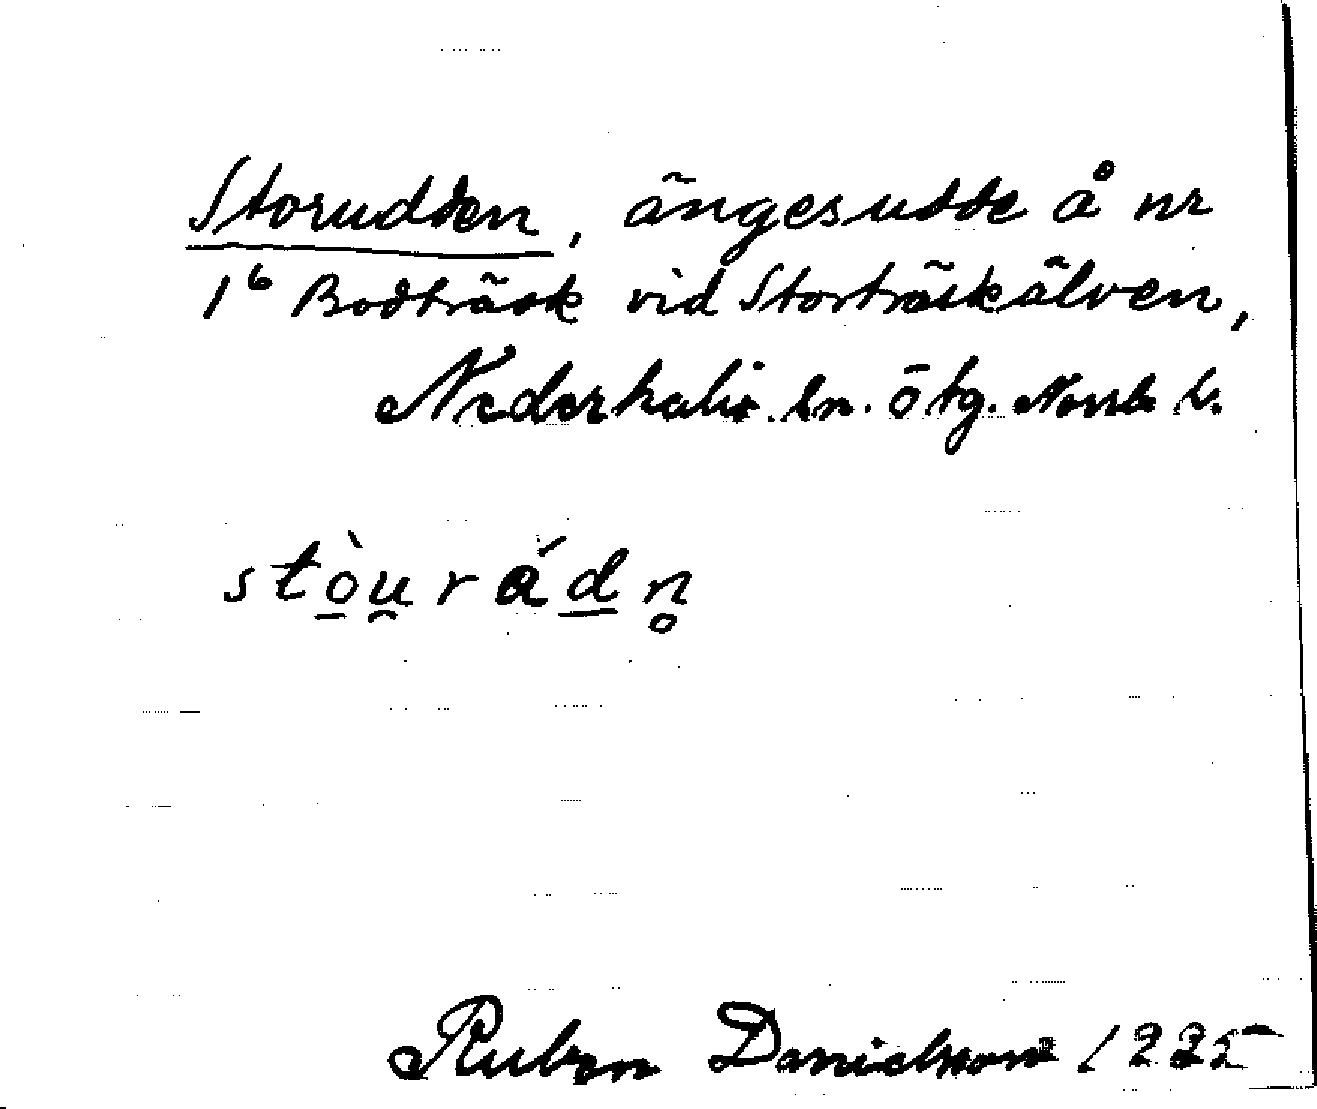 Storudden, ängesudde å nr
1⁶ Bodträsk vid Storträskälven,
Nederkalix sn. ötg. Norrb. l.
stòu̯rádn̥
Ruben Danielsson 1925